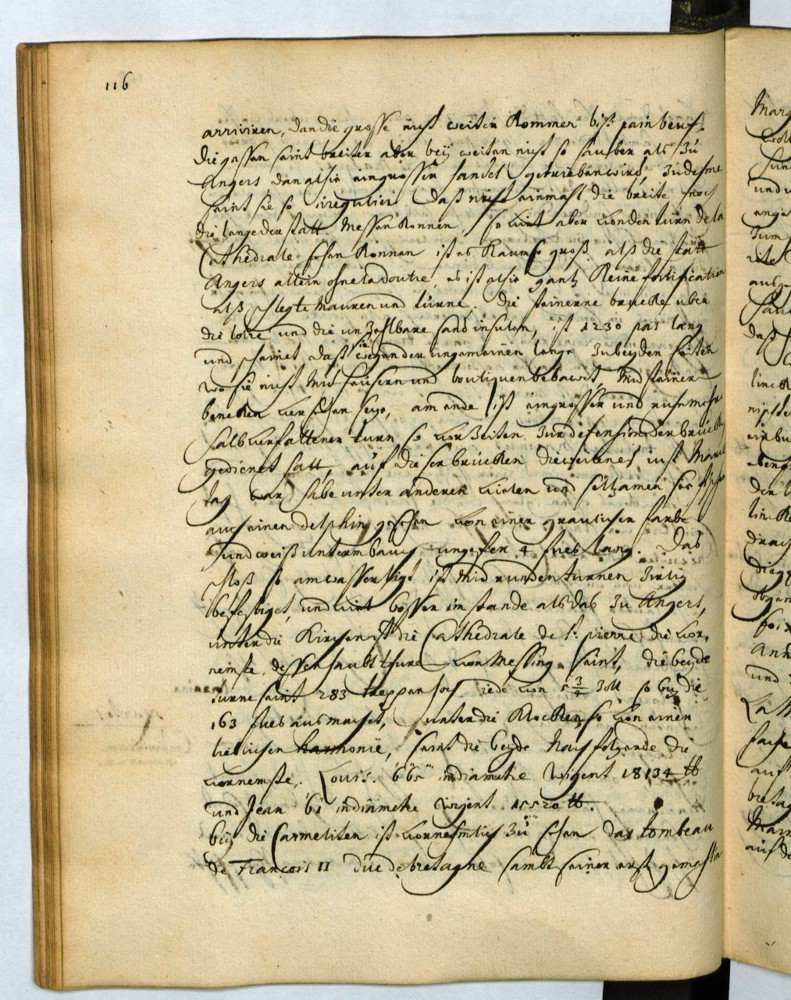 116
arriviren, dan die grosse nicht weiter kommen biß painbeuf.
die gassen saint breiter aber beÿ weiten nicht so sauber als zu
Angers dan alhie ein grosser handel getrieben wird,
saint sie so irregulier daß nicht einmahl die breite noch
die lange der statt messen konnen, so viel aber von den turn de la
Cathedrale sehen konnen ist es kaum so groß alß die statt
Angers allein ohne la doutre, es ist alhie gantz keine fortification
alß schlegte mauren und türne. die steinerne brucke uber
die loire und die unzehlbare sand insulen, ist 1230 pas lang
und scheinet daß wegen der ungemeinen lange zu beÿden seiten
wo sie nicht mit heusern und boutiquen bebauet, mit steinern
bencken versehen seÿe, am ende ist ein grosser und nuhnmehr
halb verfallener turn so vor zeiten zur defension der brucken
gedienet hatt, auf dieser brucken
tag war habe unter anderen vielen und seltzamen
auch einen delphin gesehen von einer graulichen farbe
und weiß unterm bauch ungefehr 4 fues lang. Das
schloß so am wasser ligt ist mit runden turnen
befestiget, und viel besser im stande als das zu Angers,
unter die Kirchen ist die Cathedrale de St. pierre die vor,
nemste, dessen haubt thure von Messing saint, die beÿde
turne haint 283 treppen hoch iede von 5 3/4 Zoll so beÿ die
163 fues ausmachet, unter die Klocken so von einer
lieblichen harmonie, saint die beÿde nachfolgende die
vornemste. Louis. 66" in diametre wigent 18134 ℔
und Jean 61 in diametre wigent 15520 ℔.
beÿ die Carmeliten ist vornehmlich zu sehen das tombeau
de Francois II duc de bretagne sambt seiner erst gemahlin